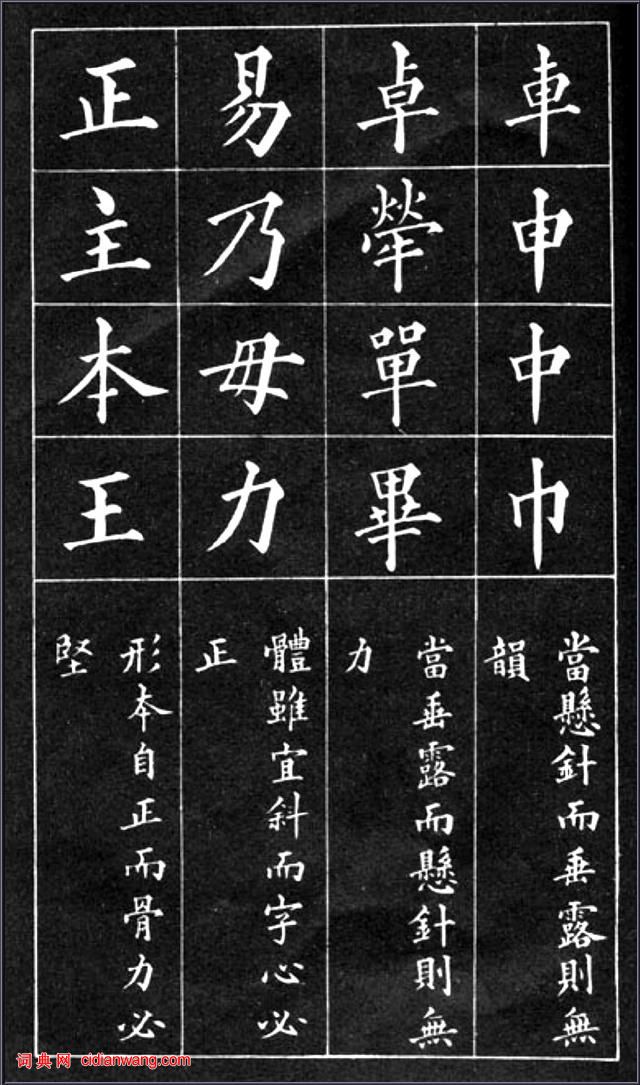 車
申
中
巾
當懸針而垂露則無
韻
卓
犖
單
畢
當垂露而懸針則無
力
易
乃
毋
力
體雖宜斜而字心必
正
正
主
本
王
形本自正而骨力必
堅
词典网 cidianwang.com